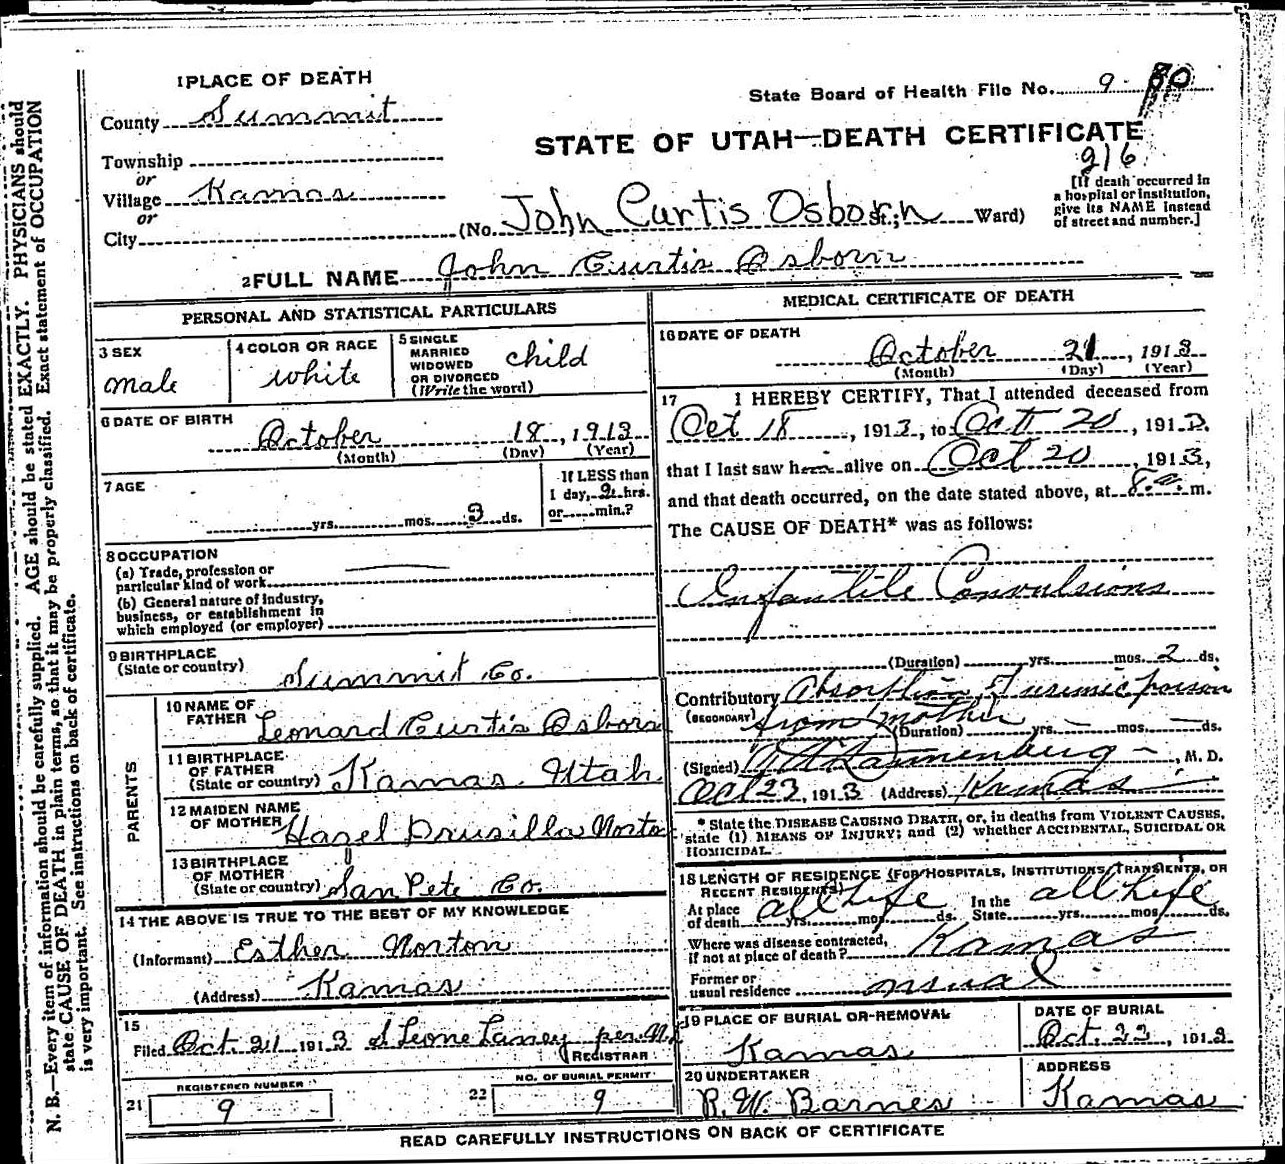 1 PLACE OF DEATH
County Summit
Township
or
Village Kamas
or
City
State Board of Health File No. 9
STATE OF UTAH—DEATH CERTIFICATE
216
[If death occurred in
a hospital or institution,
give its NAME instead
of street and number.]
(No. John Curtis Osborn St.; Ward)
2 FULL NAME John Curtis Osborn
PERSONAL AND STATISTICAL PARTICULARS
3 SEX
male
4 COLOR OR RACE
white
5 SINGLE
MARRIED
WIDOWED
OR DIVORCED
(Write the word)
child
6 DATE OF BIRTH
October 18, 1913
(Month) (Day) (Year)
7 AGE
yrs. mos. 3 ds.
If LESS than
1 day, 2 hrs.
or min.?
8 OCCUPATION
(a) Trade, profession or
particular kind of work
(b) General nature of industry,
business, or establishment in
which employed (or employer)
9 BIRTHPLACE
(State or country) Summit Co.
PARENTS
10 NAME OF
FATHER Leonard Curtis Osborn
11 BIRTHPLACE
OF FATHER
(State or country) Kamas Utah
12 MAIDEN NAME
OF MOTHER Hazel Drusilla Norton
13 BIRTHPLACE
OF MOTHER
(State or country) San Pete Co.
14 THE ABOVE IS TRUE TO THE BEST OF MY KNOWLEDGE
(Informant) Esther Norton
(Address) Kamas
15
Filed Oct. 21 1913 S Leone Laney per
REGISTRAR
REGISTERED NUMBER
21 9
NO. OF BURIAL PERMIT
22 9
MEDICAL CERTIFICATE OF DEATH
16 DATE OF DEATH
October 21, 1913
(Month) (Day) (Year)
17 I HEREBY CERTIFY, That I attended deceased from
Oct 18, 1913, to Oct 20, 1913.
that I last saw h alive on Oct 20, 1913,
and that death occurred, on the date stated above, at 8 a. m.
The CAUSE OF DEATH* was as follows:
Infantile Convulsions
(Duration) yrs. mos. 2 ds.
Contributory Absorption of uremic poison
(SECONDARY) from mother
(Duration) yrs. — mos. — ds.
(Signed) M. D.
Oct 23, 1913 (Address) Kamas
* State the DISEASE CAUSING DEATH, or, in deaths from VIOLENT CAUSES,
state (1) MEANS OF INJURY; and (2) whether ACCIDENTAL, SUICIDAL OR
HOMICIDAL.
18 LENGTH OF RESIDENCE (FOR HOSPITALS, INSTITUTIONS, TRANSIENTS, OR
RECENT RESIDENTS)
At place
of death all Life yrs. mos. ds. In the
State all Life yrs. mos. ds.
Where was disease contracted,
if not at place of death? Kamas
Former or
usual residence usual
19 PLACE OF BURIAL OR REMOVAL
Kamas
DATE OF BURIAL
Oct. 22, 1913
20 UNDERTAKER
R. W. Barnes
ADDRESS
Kamas
READ CAREFULLY INSTRUCTIONS ON BACK OF CERTIFICATE
N. B.—Every item of information should be carefully supplied. AGE should be stated EXACTLY. PHYSICIANS should
state CAUSE OF DEATH in plain terms, so that it may be properly classified. Exact statement of OCCUPATION
is very important. See instructions on back of certificate.